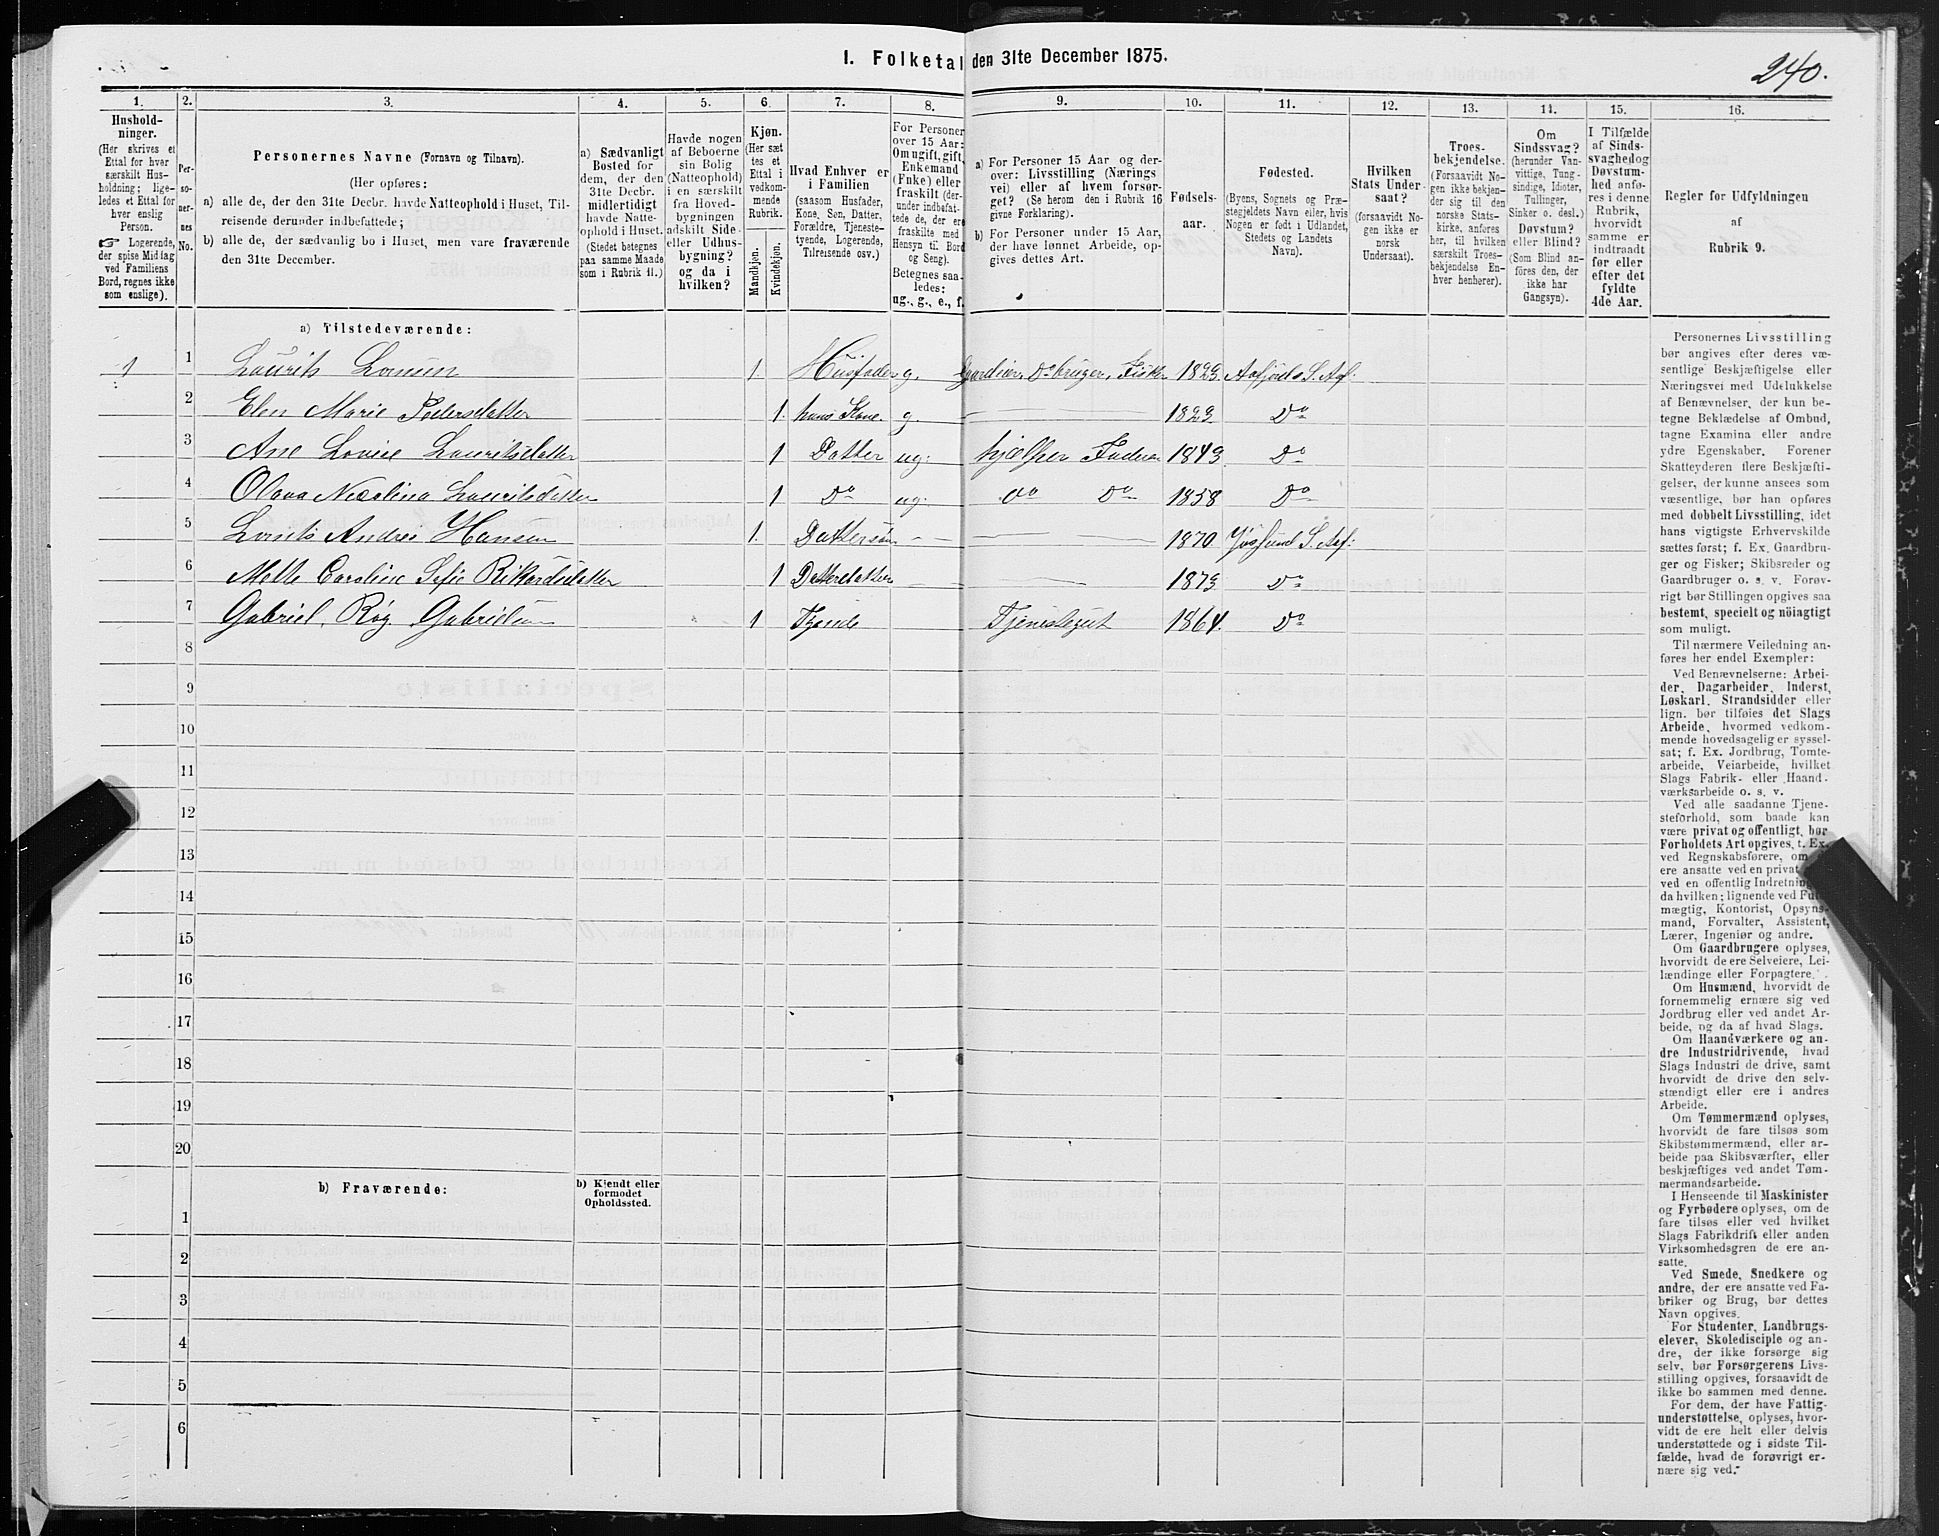 I. Folketal den 31te December 1875.
240.
1.
Hushold-
ninger.
(Her skrives et
Ettal for hver
særskilt Hus-
holdning; lige-
ledes et Ettal for
hver enslig
Person.
☞ Logerende,
der spise Middag
ved Familiens
Bord, regnes ikke
som enslige).
2.
Per-
so-
ner-
nes
No.
3.
Personernes Navne (Fornavn og Tilnavn).
(Her opføres:
a) alle de, der den 31te Decbr. havde Natteophold i Huset, Til-
reisende derunder indbefattede;
b) alle de, der sædvanlig bo i Huset, men vare fraværende
den 31te December.
4.
a) Sædvanligt
Bosted for
dem, der den
31te Decbr.
midlertidigt
havde Natte-
ophold i Huset.
(Stedet betegnes
paa samme Maade
som i Rubrik 11.)
5.
Havde nogen
af Beboerne
sin Bolig
(Natteophold)
i en særskilt
fra Hoved-
bygningen
adskilt Side-
eller Udhus-
bygning?
og da i
hvilken?
6.
Kjøn.
(Her sæt
tes et
Ettal i
vedkom-
mende
Rubrik.
Mandkjøn.
Kvindekjøn.
7.
Hvad Enhver er
i Familien
(saasom Husfader,
Kone, Søn, Datter,
Forældre, Tjeneste-
tyende, Logerende,
Tilreisende osv.)
8.
For Personer
over 15 Aar:
Om ugift, gift,
Enkemand
(Enke) eller
fraskilt (der-
under indbefat-
tede de, der ere
fraskilte med
Hensyn til Bord
og Seng).
Betegnes saa-
ledes:
ug., g., e., f.
9.
a) For Personer 15 Aar og der-
over: Livsstilling (Nærings
vei) eller af hvem forsør-
get? (Se herom den i Rubrik 16
givne Forklaring).
b) For Personer under 15 Aar,
der have lønnet Arbeide, op-
gives dettes Art.
10.
Fødsels-
aar.
11.
Fødested.
(Byens, Sognets og Præ-
stegjeldets Navn eller, hvis
Nogen er født i Udlandet,
Stedets og Landets
Navn).
12.
Hvilken
Stats Under-
saat?
(forsaavidt No-
gen ikke er
norsk
Undersaat).
13.
Troes-
bekjendelse.
(Forsaavidt No-
gen ikke bekjen-
der sig til den
norske Stats-
kirke, anføres
her, til hvilken
særskilt Troes-
bekjendelse En-
hver henhører).
14.
Om
Sindssvag?
(herunder Van-
vittige, Tung-
sindige, Idioter,
Tullinger,
Sinker o. desl.)
Døvstum?
eller Blind?
(Som Blind an-
føres den, der
ikke har
Gangsyn).
15.
I Tilfælde
af Sinds-
svaghed og
Døvstum-
hed anfø-
res i denne
Rubrik,
hvorvidt
samme er
indtraadt
før eller
efter det
fyldte
4de Aar.
16.
Regler for Udfyldningen
af
Rubrik 9.
a) Tilstedeværende:
1 1 Laurits Larsen 1. Husfader g. Gaardeier, Do bruger, Fisker 1823. Aafjords S. Aaf:
2 Elen Marie Pedersdatter 1. hans Kone. g. 1823. Do
3 Ane Lovise Lauritsdatter 1 Datter ug: hjælper Faderen 1843. Do
4 Olava Nicolina Lauritsdatter 1 Do ug: do Do 1858 Do
5 Andrea Hansen 1. Dattersøn 1870 Jøssund S. Aaf:
6 Mette Caroline Sofie Rikardsdatter 1 Datterdatter 1873 Do
7 Gabriel Røg Gabrielsen 1 Tyende Tjenestegut 1864. Do
8
9
10
11
12
13
14
15
16
17
18
19
20
b) Fraværende:
b) Kjendt eller
formodet
Opholdssted.
1
2
3
4
5
6
Personernes Livsstilling
bør angives efter deres væ-
sentlige Beskjæftigelse eller
Næringsvei med Udelukkelse
af Benævnelser, der kun be-
tegne Beklædelse af Ombud,
tagne Examina eller andre
ydre Egenskaber. Forener
Skatteyderen flere Beskjæfti-
gelser, der kunne ansees som
væsentlige, bør han opføres
med dobbelt Livsstilling, idet
hans vigtigste Erhvervskilde
sættes først; f. Ex. Gaardbru-
ger og Fisker; Skibsreder og
Gaardbruger o. s. v. Forøv-
rigt bør Stillingen opgives saa
bestemt, specielt og nöiagtigt
som muligt.
Til nærmere Veiledning an-
føres her endel Exempler:
Ved Benævnelserne: Arbei-
der, Dagarbeider, Inderst,
Løskarl, Strandsidder eller
lign. bør tilføies det Slags
Arbeide, hvormed vedkom-
mende hovedsagelig er syssel-
sat; f. Ex. Jordbrug, Tomte-
arbeide, Veiarbeide, hvilket
Slags Fabrik- eller Haand-
værksarbeide o. s. v.
Ved alle saadanne Tjene-
steforhold, som baade kan
være privat og offentligt, bør
Forholdets Art opgives, t. Ex.
ved Regnskabsførere, om
ere ansatte ved en privat
ved en offentlig Indretning
da hvilken; lignende ved Ful-
mægtig, Kontorist, Opsyns-
mand, Forvalter, Assistent,
Lærer, Ingeniør og andre.
Om Gaardbrugere oplyses,
hvorvidt de ere Selveiere, Lei-
lændinge eller Forpagtere.
Om Husmænd, hvorvidt de
fornemmelig ernære sig ved
Jordbrug eller ved andet Ar-
beide, og da af hvad Slags.
Om Haandværkere og an-
dre Industridrivende, hvad
Slags Industri de drive, samt
hvorvidt de drive den selv-
stændigt eller ere i andres
Arbeide.
Om Tømmermænd oplyses,
hvorvidt de fare tilsøs som
Skibstømmermænd, eller ar-
beide paa Skibsværfter, eller
beskjæftiges ved andet Tøm-
mermandsarbeide.
I Henseende til Maskinister
og Fyrbødere oplyses, om de
fare tilsøs eller ved hvilket
Slags Fabrikdrift eller anden
Virksomhedsgren de ere an-
satte.
Ved Smede, Snedkere og
andre, der ere ansatte ved Fa-
briker og Brug, bør dettes
Navn opgives.
For Studenter, Landbrugs-
elever, Skoledisciple og an-
dre, der ikke forsørge sig
selv, bør Forsørgerens Livs-
stilling opgives, forsaavidt de
ikke bo sammen med denne.
For dem, der have Fattig-
understøttelse, oplyses, hvor-
vidt de ere helt eller delvis
understøttede og i sidste Til-
fælde, hvad de forøvrigt er-
nære sig ved.